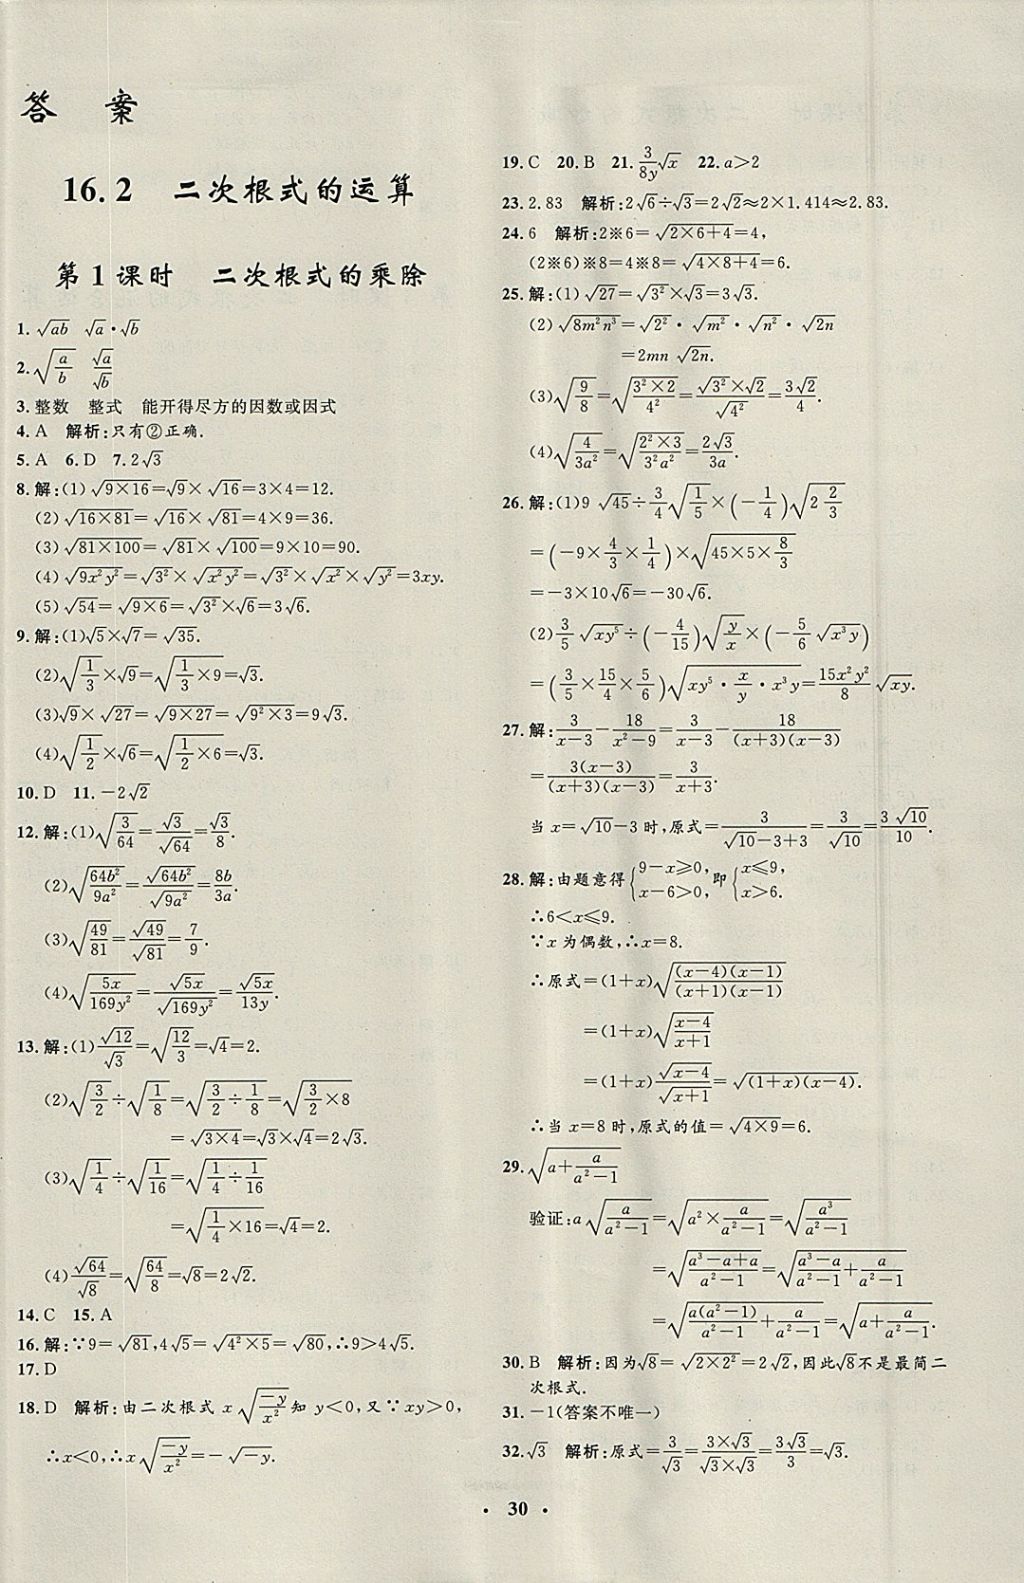 答 案
16.2 二次根式的运算
第1课时 二次根式的乘除
1. √(ab) √a·√b
2. √(a/b) √a/√b
3. 整数 整式 能开得尽方的因数或因式
4. A 解析:只有②正确.
5. A 6. D 7. 2√3
8. 解:(1)√(9×16)=√9×√16=3×4=12.
(2)√(16×81)=√16×√81=4×9=36.
(3)√(81×100)=√81×√100=9×10=90.
(4)√(9x²y²)=√(3²)×√(x²y²)=√(3²)×√(x²)×√(y²)=3xy.
(5)√54=√(9×6)=√(3²)×√6=3√6.
9. 解:(1)√5×√7=√35.
(2)√(1/3)×√9=√(1/3×9)=√3.
(3)√9×√27=√(9×27)=√(9²×3)=9√3.
(4)√(1/2)×√6=√(1/2×6)=√3.
10. D 11. -2√2
12. 解:(1)√(3/64)=√3/√64=√3/8.
(2)√(64b²/9a²)=√(64b²)/√(9a²)=8b/3a.
(3)√(49/81)=√49/√81=7/9.
(4)√(5x/169y²)=√(5x)/√(169y²)=√(5x)/13y.
13. 解:(1)√12/√3=√(12/3)=√4=2.
(2)√(3/2)÷√(1/8)=√(3/2÷1/8)=√(3/2×8)
=√(3×4)=√3×√4=2√3.
(3)√(1/4)÷√(1/16)=√(1/4÷1/16)
=√(1/4×16)=√4=2.
(4)√64/√8=√(64/8)=√8=2√2.
14. C 15. A
16. 解:∵9=√81,4√5=√(4²×5)=√80,∴9>4√5.
17. D
18. D 解析:由二次根式 x√(-y/x²)知 y<0,又∵xy>0,
∴x<0,∴x√(-y/x²)=-√(-y).
19. C 20. B 21. 3/8y √x 22. a>2
23. 2.83 解析:2√6÷√3=2√2≈2×1.414≈2.83.
24. 6 解析:2※6=√(2×6+4)=4,
(2※6)※8=4※8=√(4×8+4)=6.
25. 解:(1)√27=√(3²)×√3=3√3.
(2)√(8m²n³)=√(2²)·√(m²)·√(n²)·√(2n)
=2mn√(2n).
(3)√(9/8)=√(3²×2/4²)=√(3²)×√2/√(4²)=3√2/4.
(4)√(4/3a²)=√(2²×3/3²a²)=2√3/3a.
26. 解:(1)9√45÷3/4√(1/5)×(-1/4)√(2 2/3)
=(-9×4/3×1/4)×√(45×5×8/3)
=-3×10√6=-30√6.
(2)3/5√(xy⁵)÷(-4/15)√(y/x)×(-5/6√(x³y))
=(3/5×15/4×5/6)√(xy⁵·x/y·x³y)=15x²y²/8 √(xy).
27. 解:3/(x-3)-18/(x²-9)=3/(x-3)-18/((x+3)(x-3))
=3(x-3)/((x+3)(x-3))=3/(x+3).
当 x=√10-3时,原式=3/(√10-3+3)=3/√10=3√10/10.
28. 解:由题意得{9-x≥0, x-6>0,即{x≤9, x>6.
∴6<x≤9.
∵x为偶数,∴x=8.
∴原式=(1+x)√((x-4)(x-1)/(x+1)(x-1))
=(1+x)√((x-4)/(x+1))
=(1+x)√(x-4)/√(x+1)=√((1+x)(x-4)).
∴当 x=8时,原式的值=√(4×9)=6.
29. √(a+a/(a²-1))
验证:a√(a/(a²-1))=√(a²×a/(a²-1))=√(a³/(a²-1))
=√((a³-a+a)/(a²-1))=√((a³-a)/(a²-1)+a/(a²-1))
=√(a(a²-1)/(a²-1)+a/(a²-1))=√(a+a/(a²-1)).
30. B 解析:因为√8=√(2×2²)=2√2,因此√8不是最简二
次根式.
31. -1(答案不唯一)
32. √3 解析:原式=3/√3=3×√3/(√3×√3)=3√3/3=√3.
· 30 ·